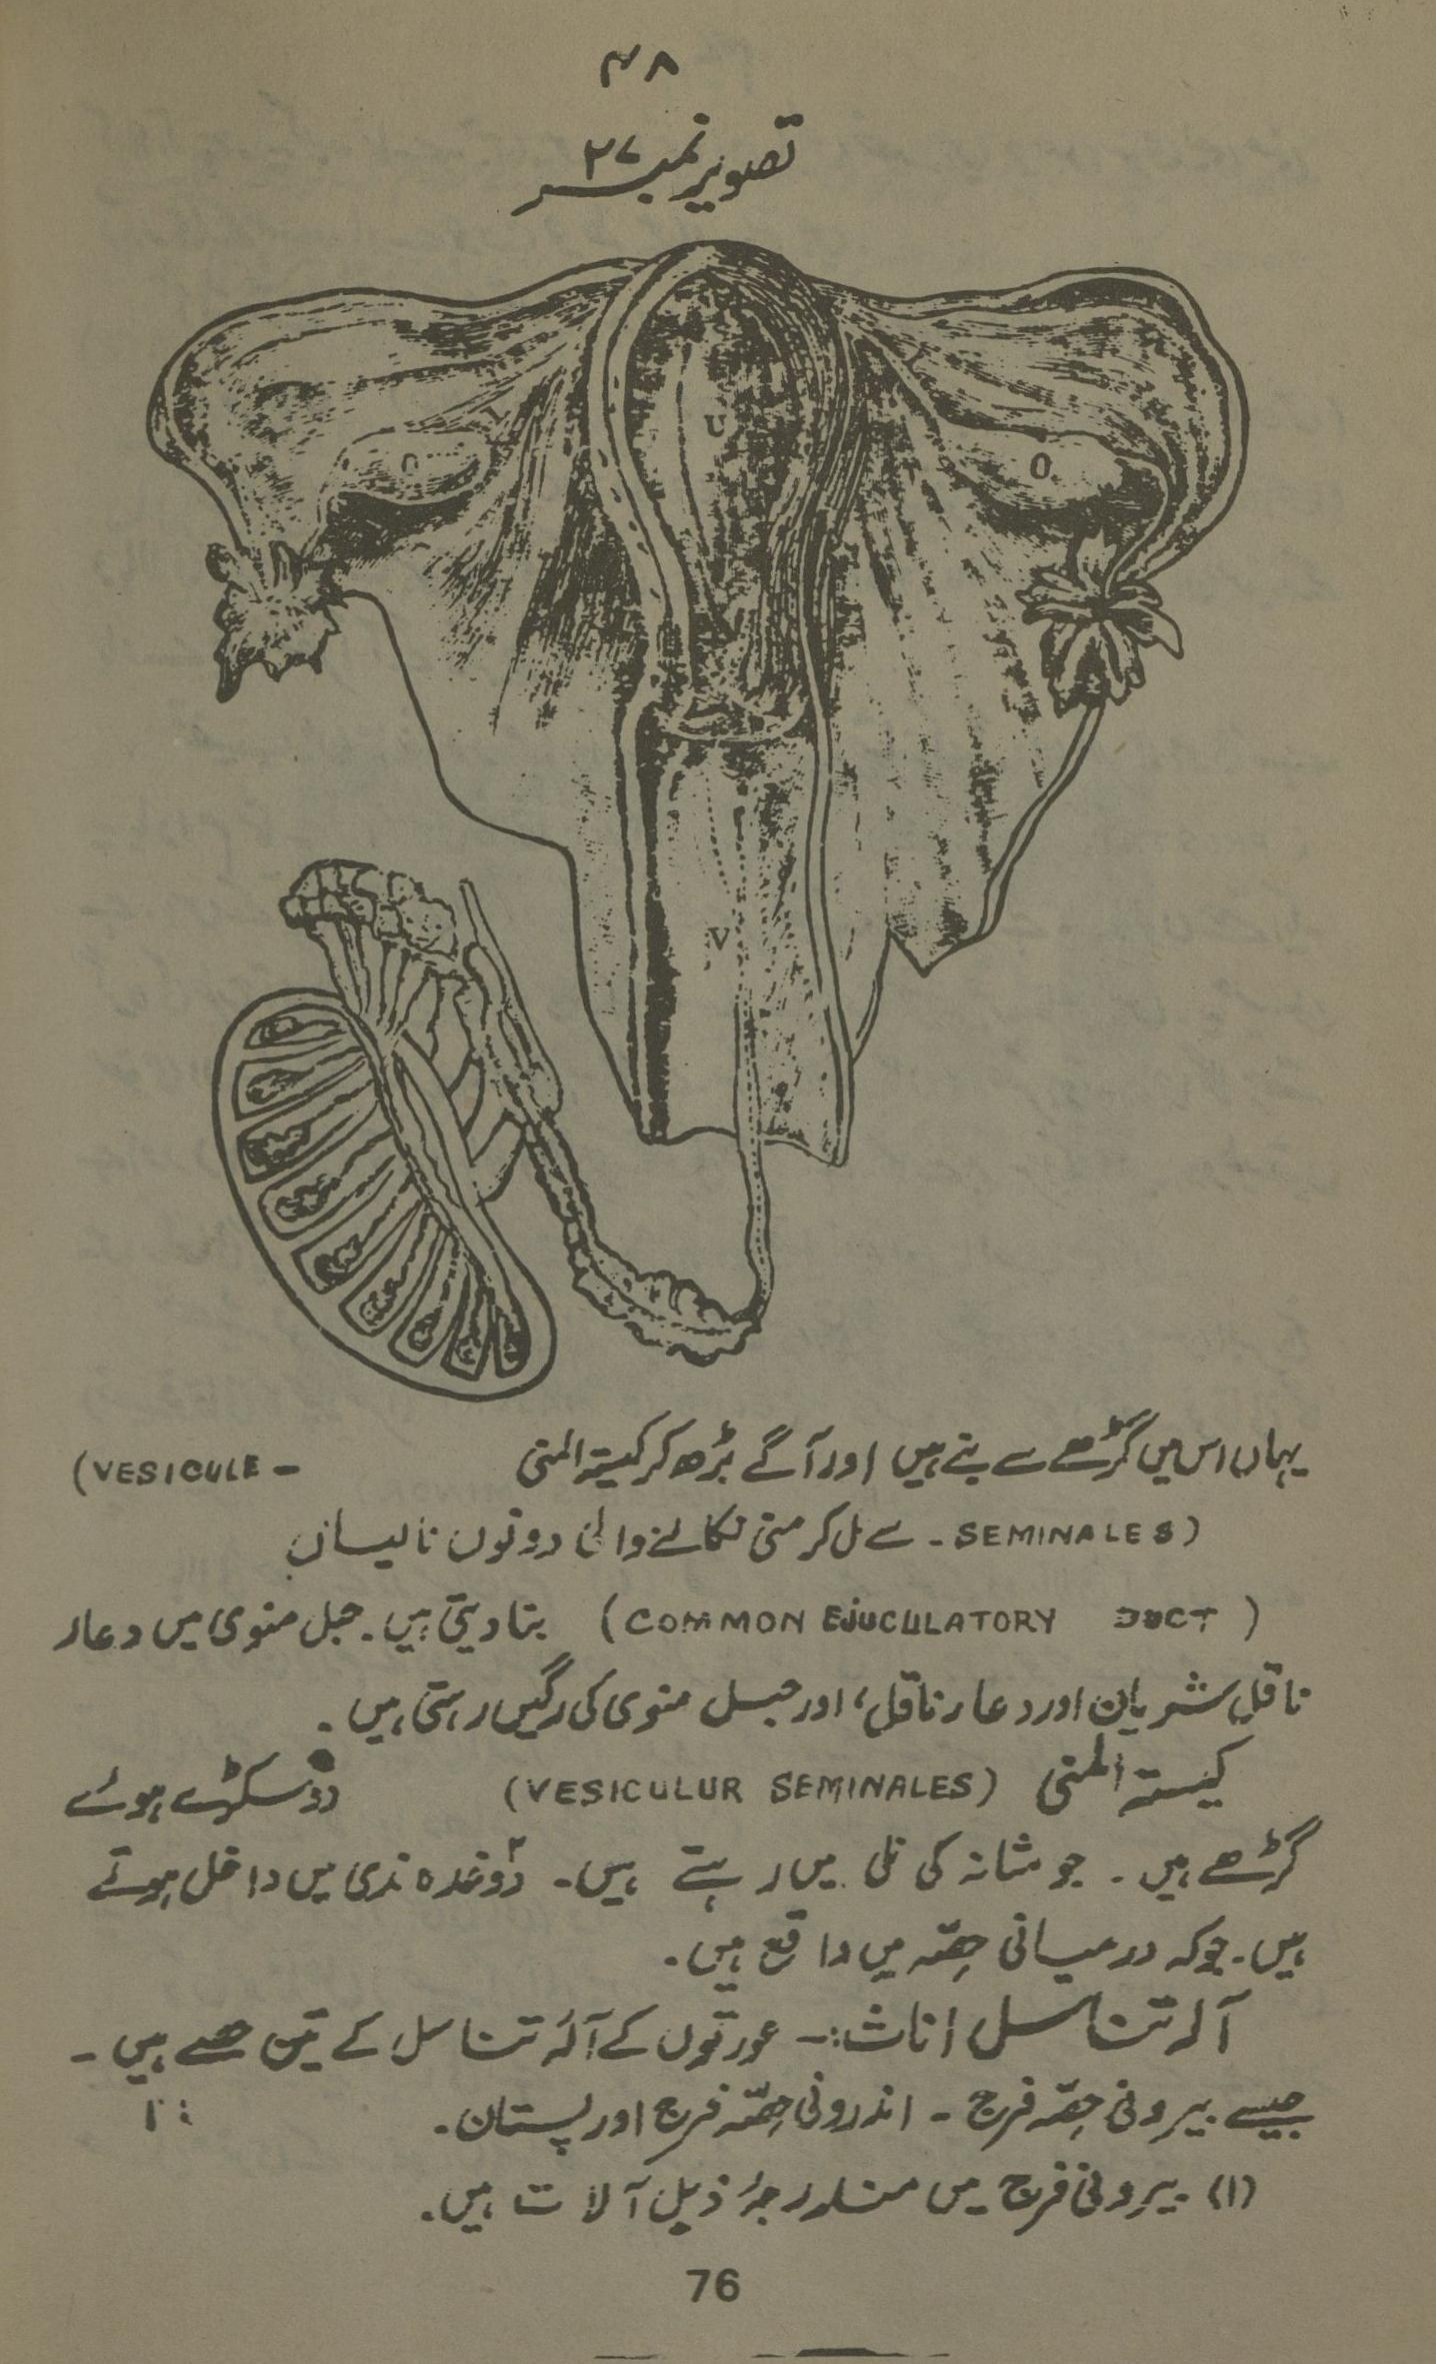 ۴۸
تصویر نمبر ۲۷
U
O
O
V
یہاں اس میں گڑھے سے بنے ہیں اور آگے بڑھ کر کیستہ المنی (VESICULE -
SEMINALES) - سے مل کر منی نکالنے والی دونوں نالیاں
(COMMON EJUCULATORY DUCT) بنا دیتی ہیں۔ حبل منوی میں دعار
ناقل شریان اور دعار ناقل، اور حبل منوی کی رگیں رہتی ہیں۔
کیستہ المنی (VESICULUR SEMINALES) دو سکڑے ہوئے
گڑھے ہیں۔ جو مثانہ کی تلی میں رہتے ہیں۔ دو غدہ ندی میں داخل ہوتے
ہیں۔ جو کہ درمیانی حصّہ میں واقع ہیں۔
آلہ تناسل اناث:- عورتوں کے آلۂ تناسل کے تین حصے ہیں -
جیسے بیرونی حصّہ فرج - اندرونی حصّہ فرج اور پستان۔
(۱) بیرونی فرج میں مندرجۂ ذیل آلات ہیں۔
76